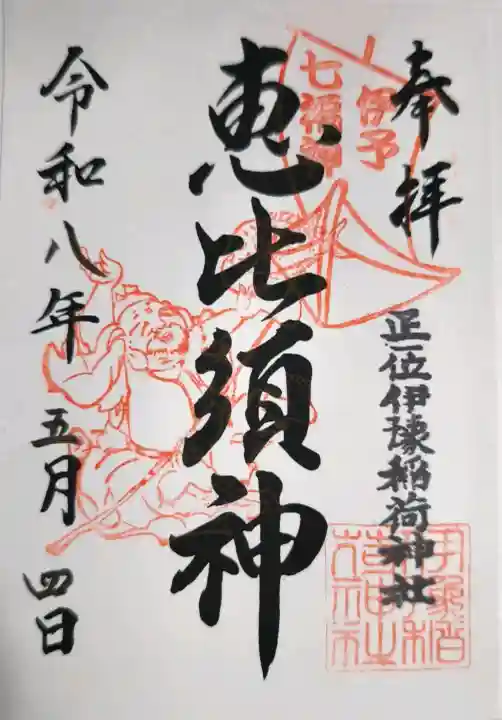 奉拝
伊予
七福神
正一位伊豫稲荷神社
恵比須神
令和八年五月四日